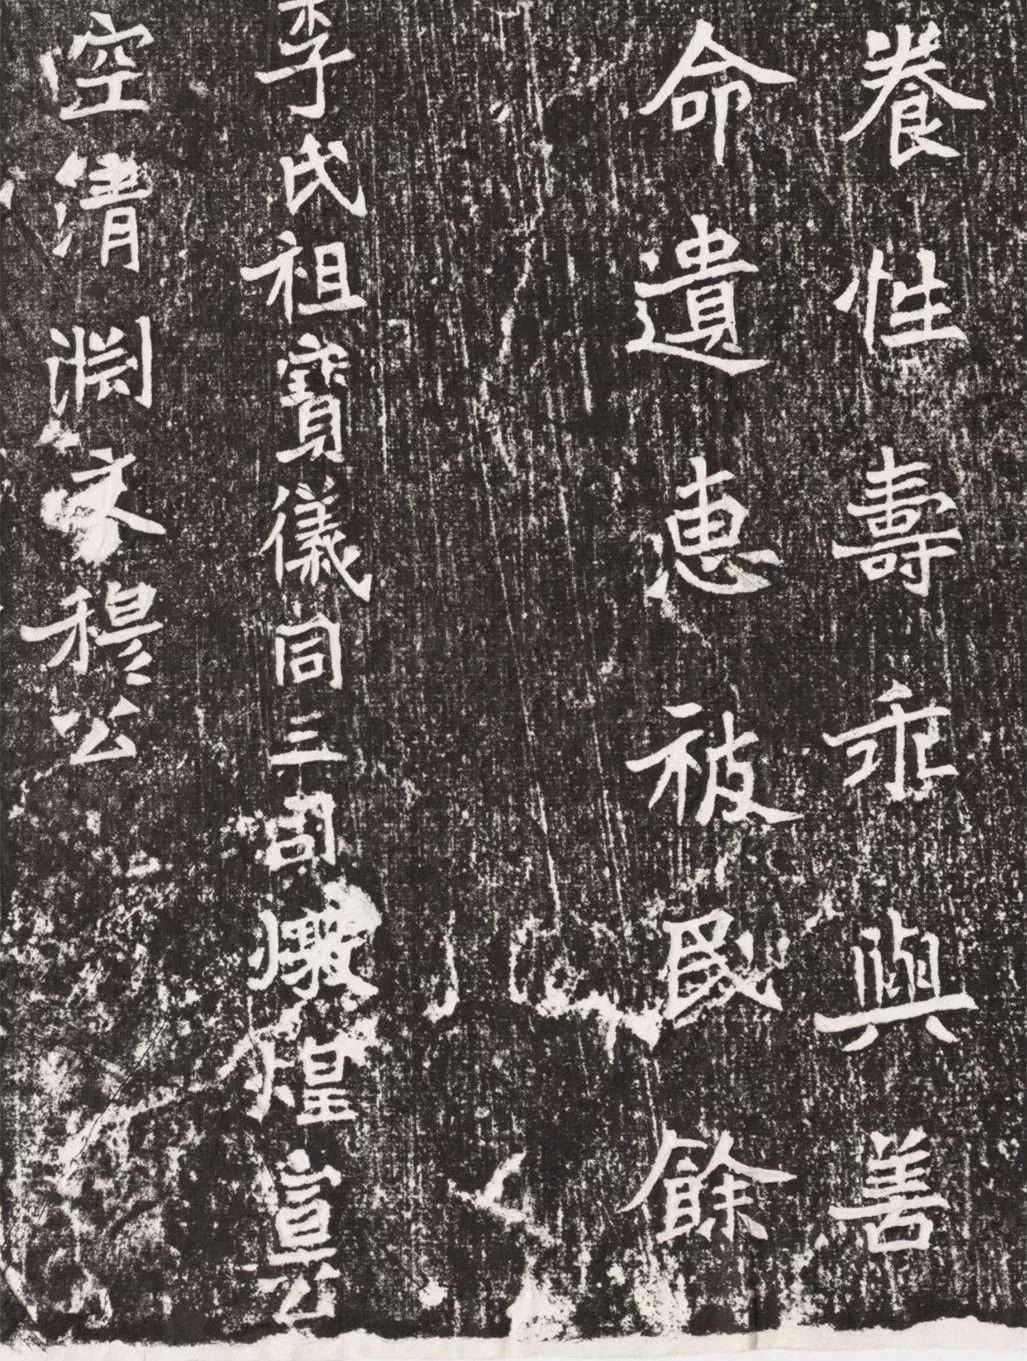 養性壽乖與善
命遺惠被民餘
李氏祖寶儀同三司燉煌宣公
空清淵文穆公